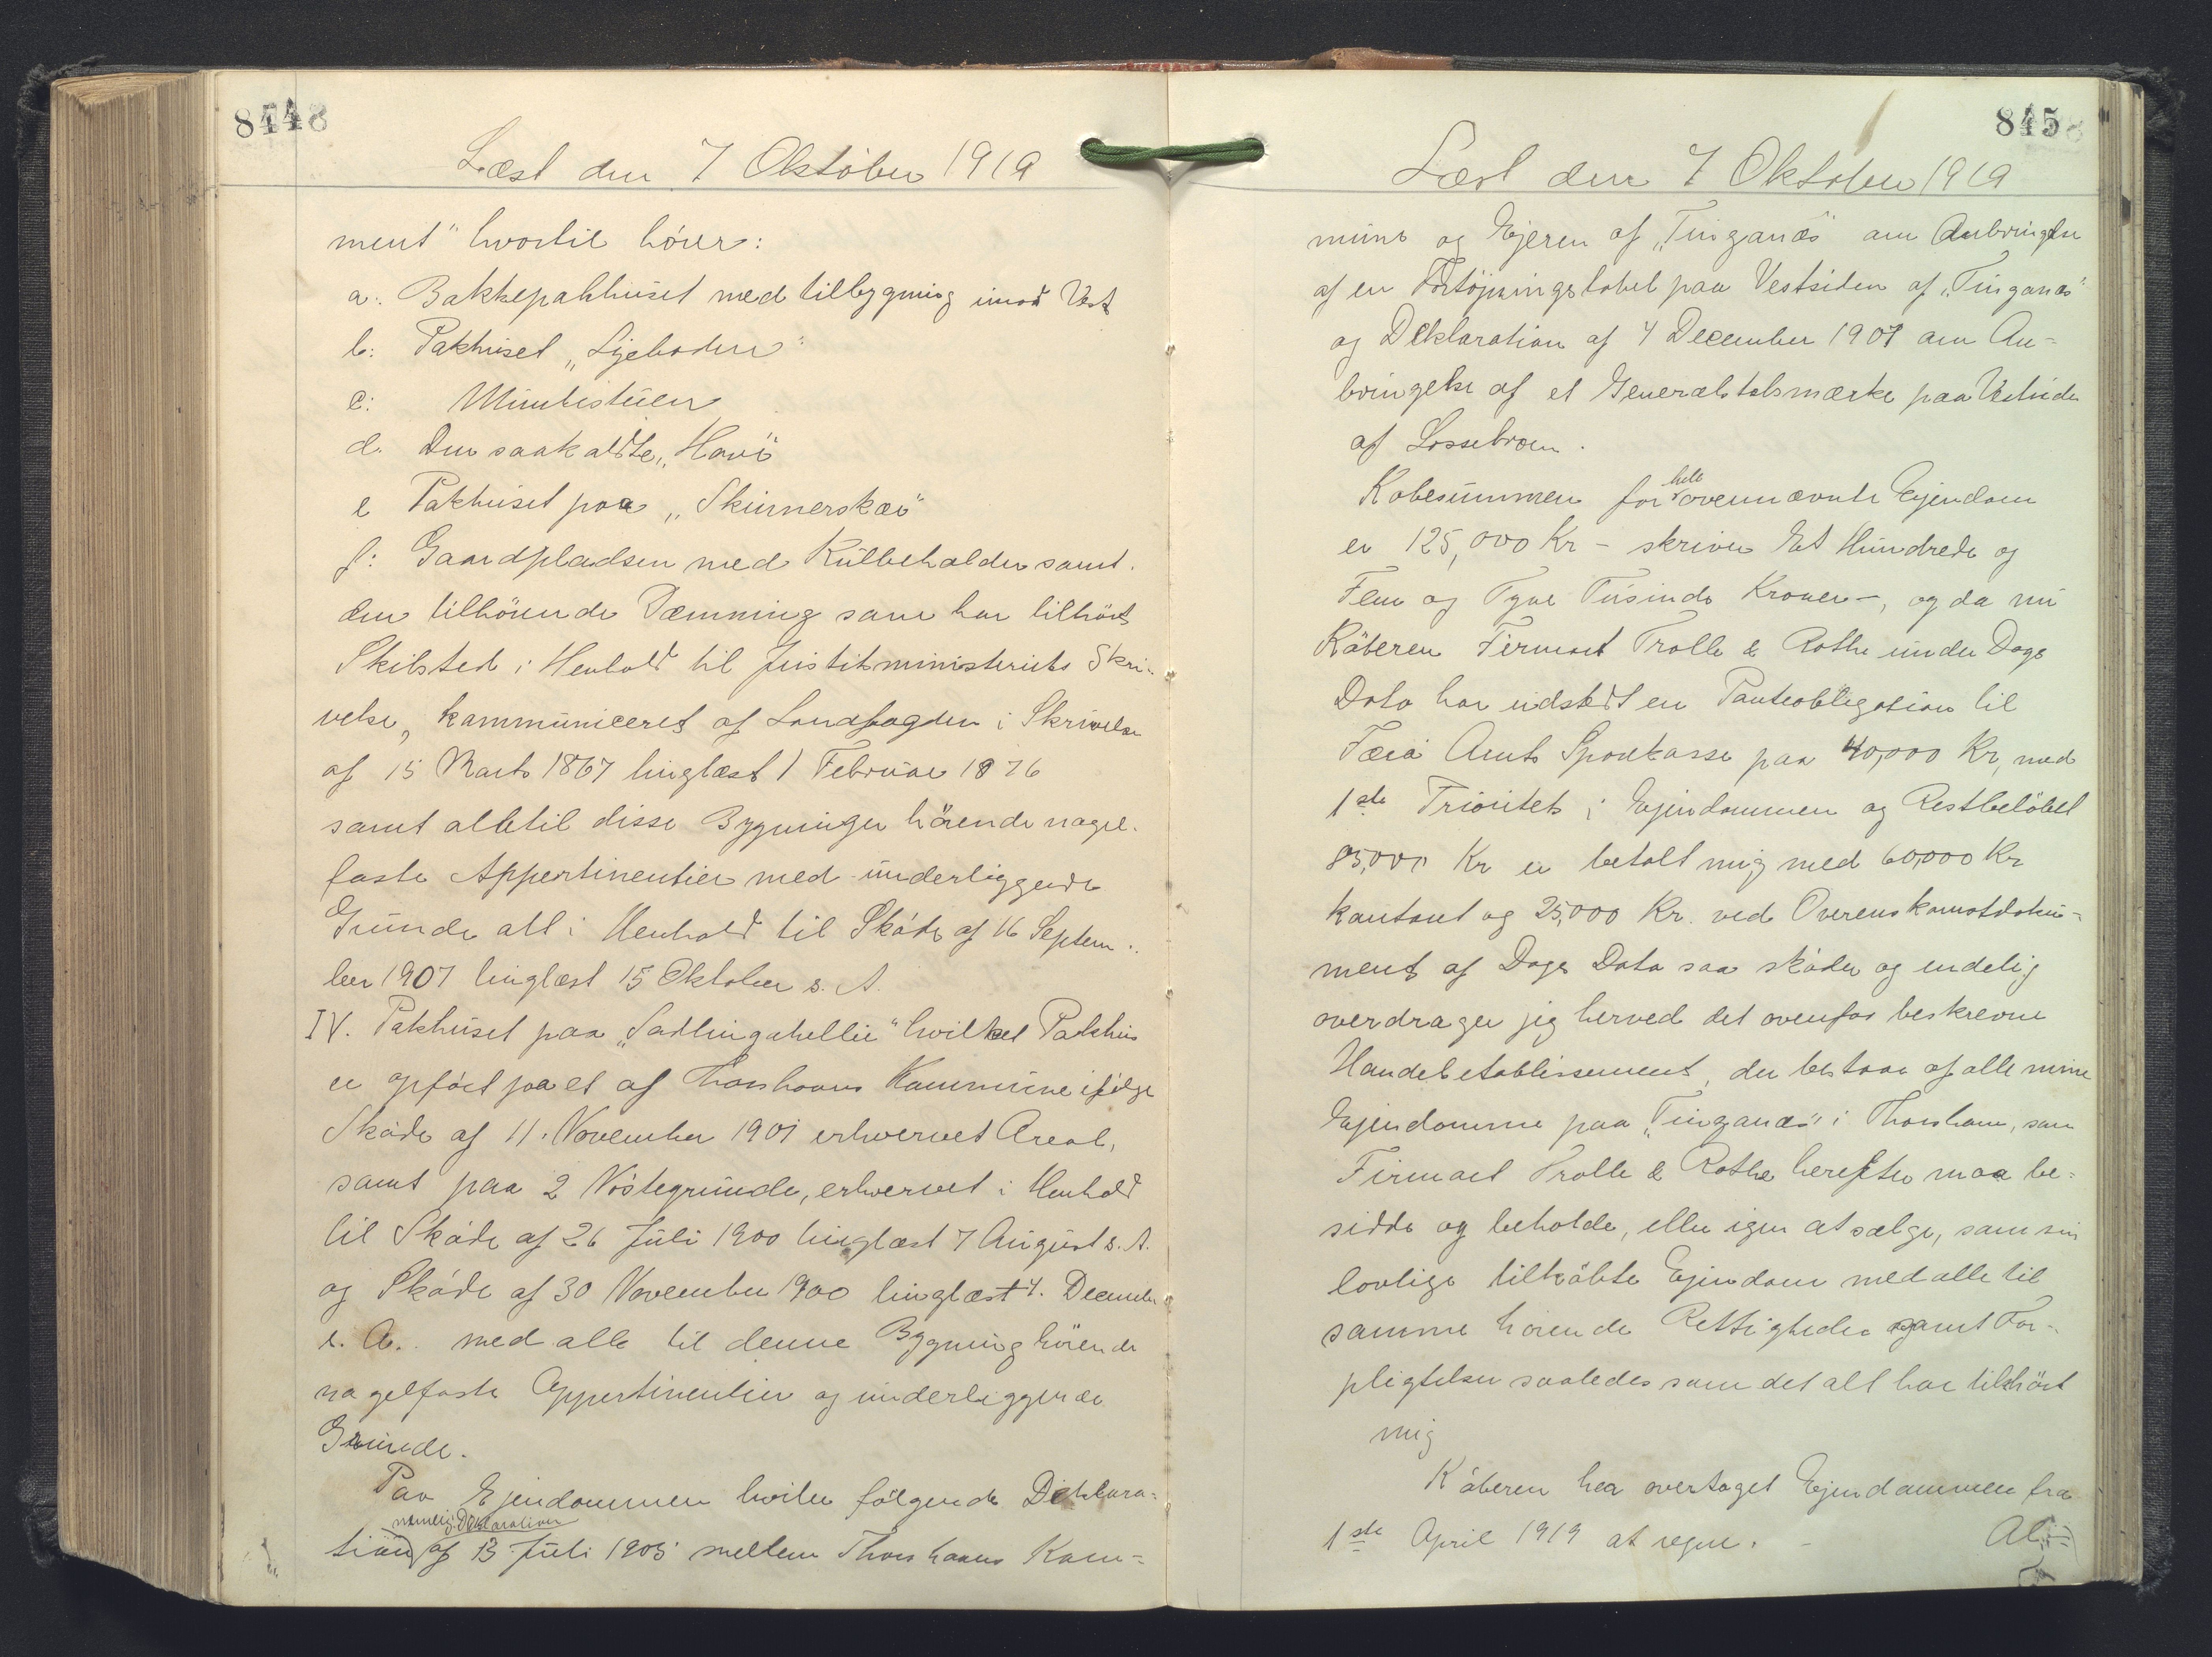 844
Læst den 7 Oktober 1919
ment" hvortil hører:
a: Bakkepakhuset med tilbygning imod Vest
b: Pakhuset „Lyeboden"
c: Munkestuen
d. Den saakaldte „Havi"
e Pakhuset paa „Skinnerskær"
f: Gaardpladsen med Kulbeholder samt
den tilhørende Dæmning som har tilhørt
Skibsted i Henhold til Justitsministeriets Skri-
velse, kommuniceret af Landfogden i Skrivelse
af 15 Marts 1867 tinglæst 1 Februar 1876
samt alletil disse Bygninger hörende nagel-
faste Appertinentier med underliggende
Grunde alt i Henhold til Skøde af 16 Septem-
ber 1907 tinglæst 15 Oktober s. A.
IV. Pakhuset paa hvilket Pakhus
er opført paa et af Thorshavns Kommune ifølge
Skøde af 11. November 1901 erhvervet Areal,
samt paa 2 Nöstegrunde, erhvervet i Henhold
til Skøde af 26 Juli 1900 tinglæst 7 August s. A.
og Skøde af 30 November 1900 tinglæst 4. December
s. A. med alle til denne Bygning hörende
nagelfaste Appertinentier og underliggende
Grunde.
Paa Ejendommen hviler fölgende Deklara-
nemlig Deklaration
tion af 13 Juli 1905 mellem Thorshavns Kom-
845
Læst den 7 Oktober 1919
mune og Ejeren af „Tinganæs" om Anbringelse
af en Fortöjningstobel paa Vestsiden af „Tinganæs"
og Deklaration af 4 December 1907 om An-
bringelse af et Generalstabsmærke paa Vestsiden
af Lossebroen.
Købesummen for hele ovennævnte Ejendom
er 125,000 Kr - skriver Et Hundrede og
Fem og Tyve Tusinde Kroner -, og da nu
Köberen Firmaet Trolle & Rothe under Dags
Dato har udstedt en Panteobligation til
Færø Amts Sparekasse paa 40,000 Kr, med
1ste Prioritet i Ejendommen og Restbelöbet
85,000 Kr er betalt mig med 60,000 Kr
kontant og 25,000 Kr. ved Overenskomstdoku-
ment af Dags Dato saa skøder og endelig
overdrager jeg herved det ovenfor beskrevne
Handelsetablissement, der bestaar af alle mine
Ejendomme paa „Tinganæs" i Thorshavn, som
Firmaet Trolle & Rothe herefter maa be-
sidde og beholde, eller igen at sælge, som sin
lovlige tilköbte Ejendom med alle til
samme hörende Rettigheder samt For-
pligtelser saaledes som det alt har tilhört
mig
Köberen har overtaget Ejendommen fra
1ste April 1919 at regne. -
Al-